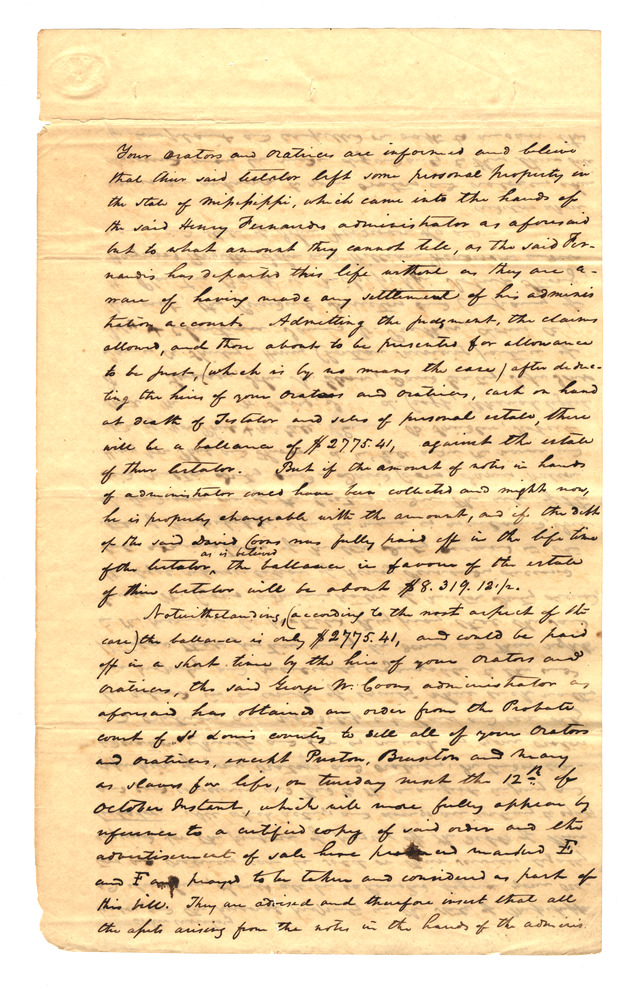 Your orators and oratrices are informed and bleive
that their said testator left some personal property in
the state of Missippippi, which came into the hands of
the said Henry Fernandis administrator as aforesaid
but to what amount they cannot tele, as the said Fer-
nandis has departed this life without as they are a-
ware of having made any settlement of his adminis
tration accounts. Admitting the judgment, the claims
allowed, and those about to be presented for allowance
to be just, (which is by no means the case) after deduc-
ting the hires of your orators and oratrices, cash on hand
at death of Testator and sales of personal estate, there
will be a ballance of $2775.41, against the estate
of their testator. But if the amount of notes in hands
of administrator could have been collected and might now,
he is properly chargeable with the amount, and if the debt
of the said David Coons was fully paid off in the life time
of the testator, as is belived the ballance in favour of the estate
of their testator will be about $8.319.12 1/2.
Notwithstanding, (according to the most aspect of the
case) the ballance is only $2775.41, and could be paid
off in a short time by the hire of your orators and
oratrices, the said George W. Coons administrator as
aforesaid has obtained an order from the Probate
court of St Louis county to sell all of your orators
and oratrices, except Preston, Braxton and Mary
as slaves for life, on tuesday next the 12th of
October Instant, which will more fully appear by
reference to a certified copy of said order and the
advertisement of sale here produced marked E
and F and prayed to be taken and considered as part of
this bill. They are advised and therefore insert that all
the assets arising from the notes in the hands of the adminis